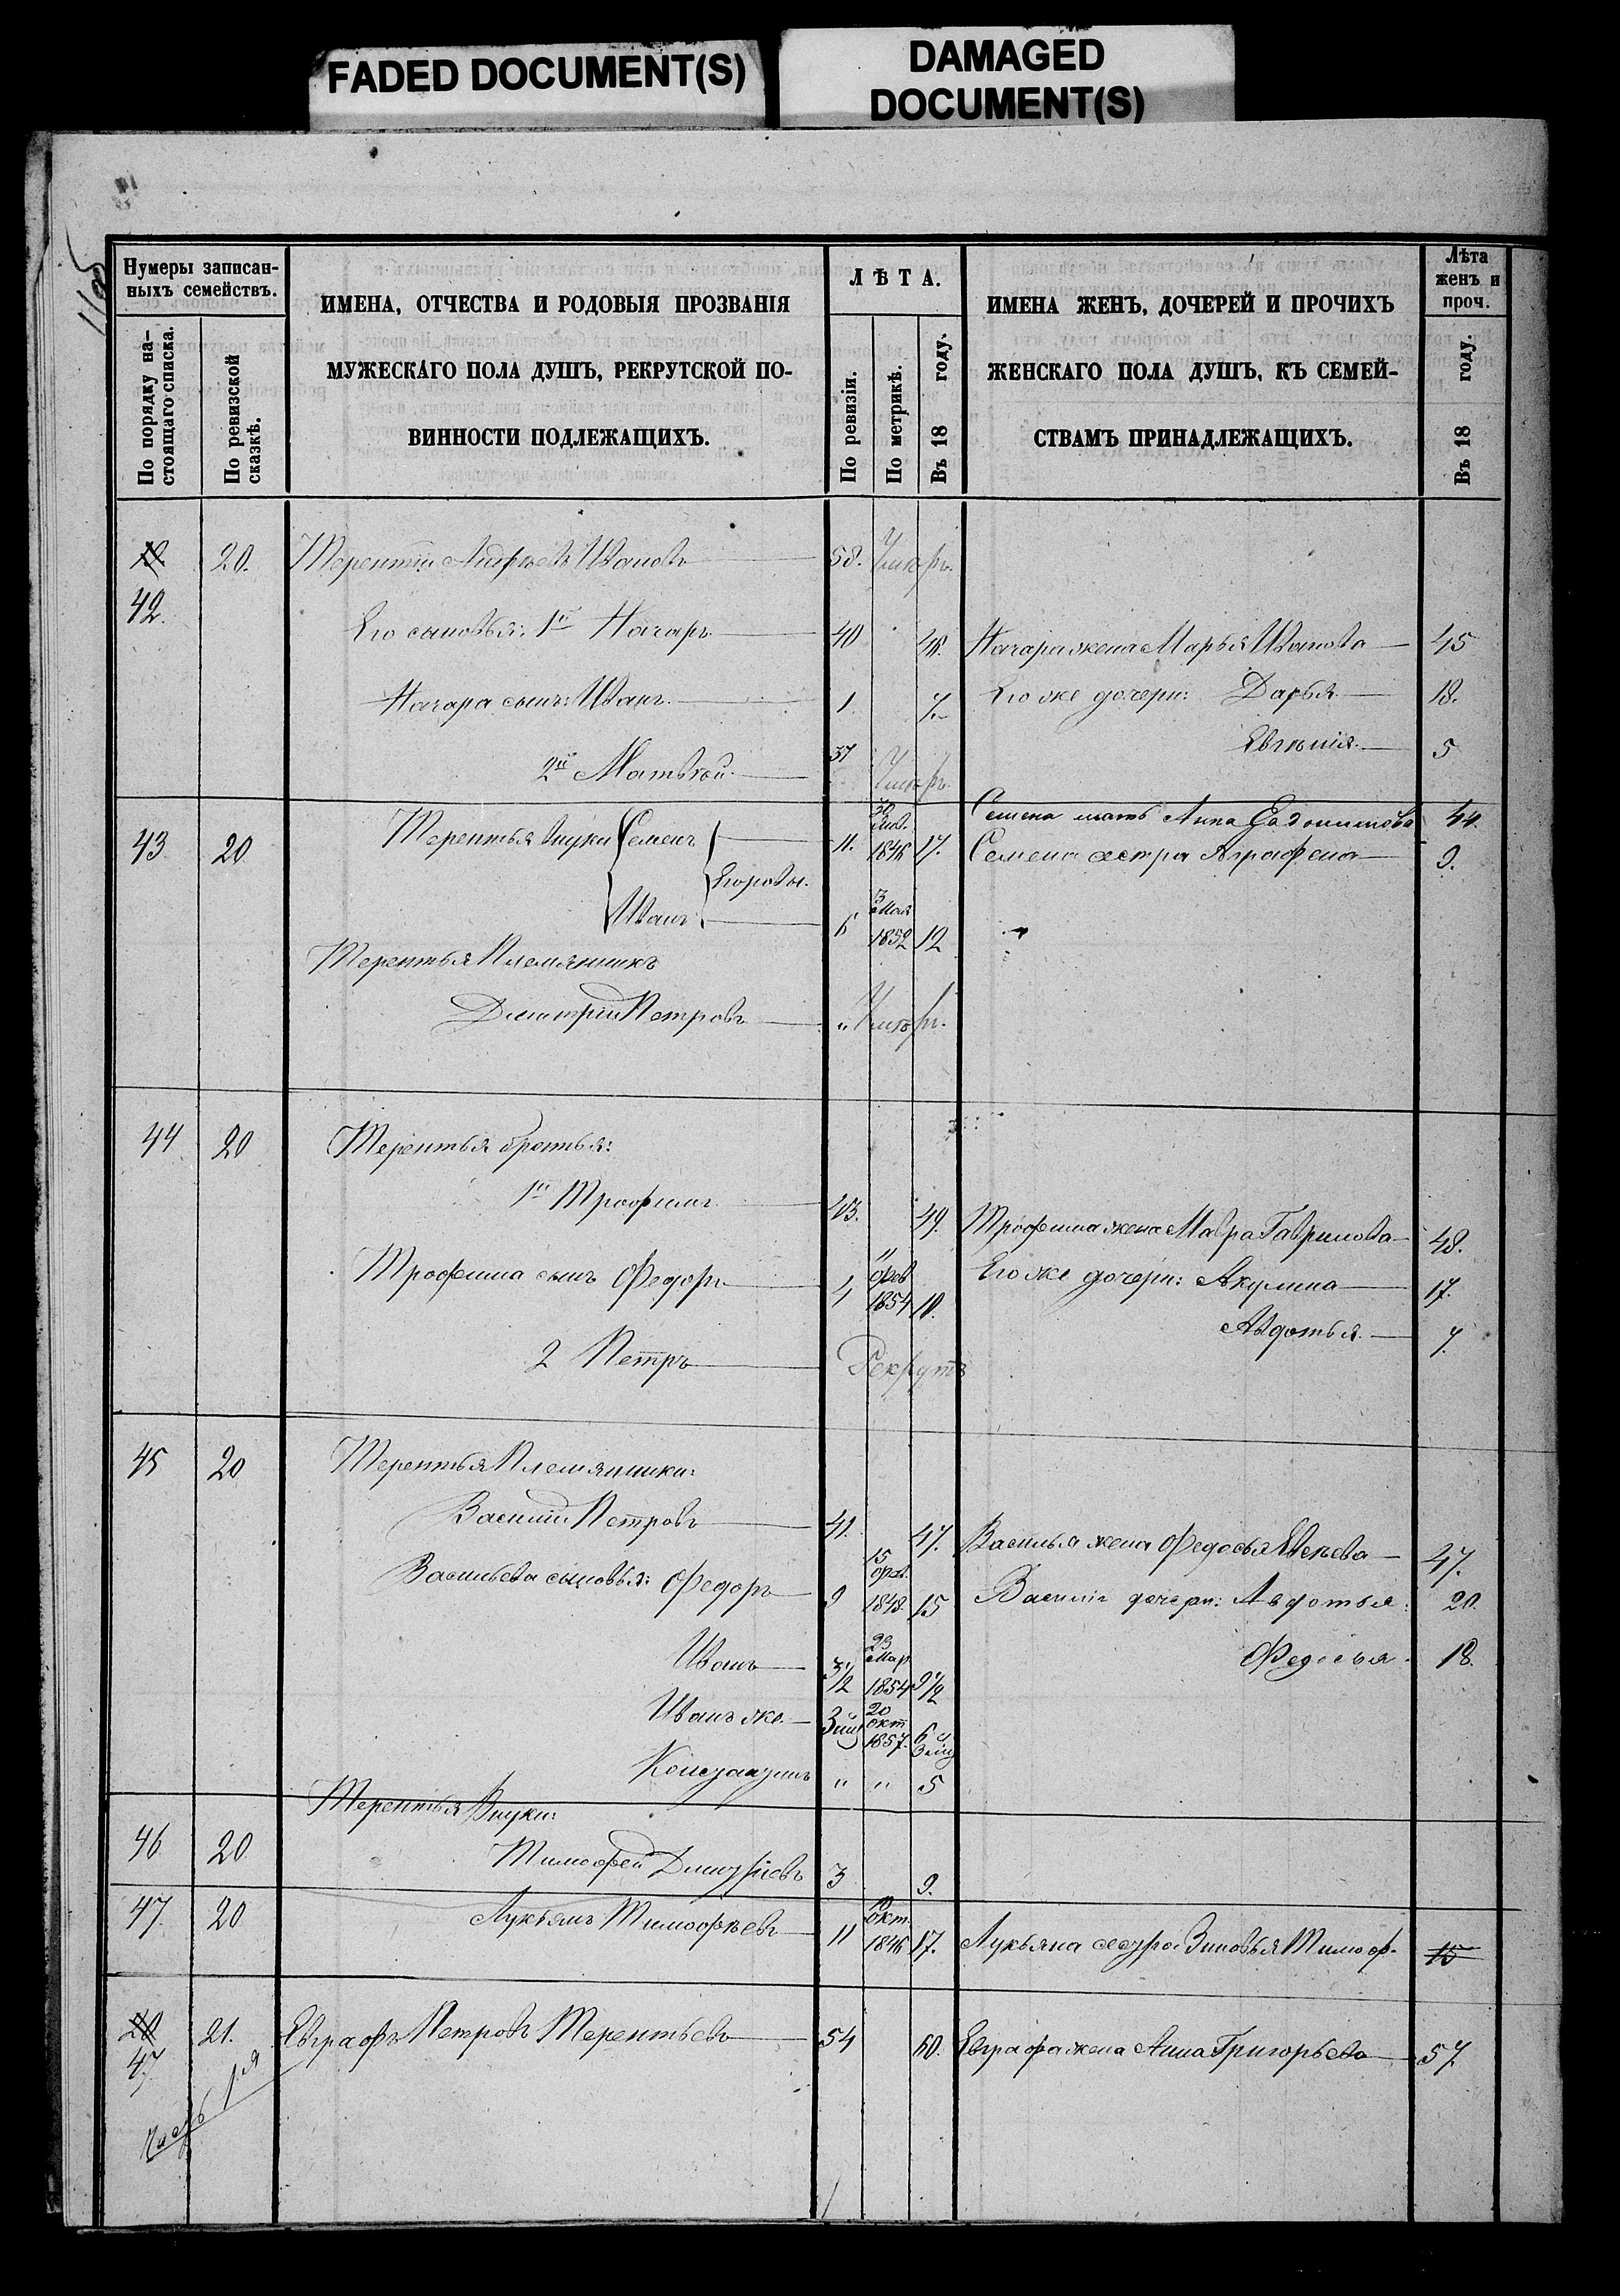 FADED DOCUMENT(S)
DAMAGED
DOCUMENT(S)
Нумеры записан-
ныхъ семействъ.
По порядку на-
стоящаго списка.
По ревизской
сказкѣ.
ИМЕНА, ОТЧЕСТВА И РОДОВЫЯ ПРОЗВАНІЯ
МУЖЕСКАГО ПОЛА ДУШЪ, РЕКРУТСКОЙ ПО-
ВИННОСТИ ПОДЛЕЖАЩИХЪ.
ЛѢТА.
По ревизіи.
По метрикѣ.
Въ 18 году.
ИМЕНА ЖЕНЪ, ДОЧЕРЕЙ И ПРОЧИХЪ
ЖЕНСКАГО ПОЛА ДУШЪ, КЪ СЕМЕЙ-
СТВАМЪ ПРИНАДЛЕЖАЩИХЪ.
Лѣта
женъ и
проч.
Въ 18 году.
20. Терентій Андреевъ Ивановъ 58. Умеръ.
42.
Его сыновья: 1й Назаръ 40 46. Назара жена Марья Иванова 45
Назара сынъ: Иванъ 1 7. Его же дочери: Дарья 18.
Евгенія 5
2й Матвѣй 37 Умеръ
Семена мать Анна 44.
43 20 Терентья внуки Семенъ 11. 30 1846 17. Семена сестра Аграфена 9.
Егоровы.
Иванъ 6 3 мая 1852 12
Терентья Племянникъ
Дмитрій Петровъ " Умеръ.
44 20 Терентья братья:
1й Трофимъ 43. 49. Трофима жена Мавра Гаврилова 48.
Трофима сынъ Федоръ 4 11 фев 1854 10. Его же дочери: Акулина 17.
Авдотья 7.
2 Петръ Рекрутъ
45 20 Терентья Племянники:
Василій Петровъ 41. 47. Василья жена Федосья 47.
Васильева сыновья: Федоръ 9 15 фев. 1848 15 Василія дочери: Авдотья 20.
Иванъ 3 1/2 23 мар 1854 9 1/2 Федосья 18.
Иванъ же 20 окт 1857. 6
" " 5
Терентья Внуки:
46 20 Тимофей Дмитріевъ 3 9.
47. 20 Лукьянъ Тимофѣевъ 11 окт. 1846 17. Лукьяна сестра Зиновья Тимоф. 15
20 21. Евграфъ Петровъ Терентьевъ 54 60. Евграфа жена Анна Григорьева 57
47
часть 1я